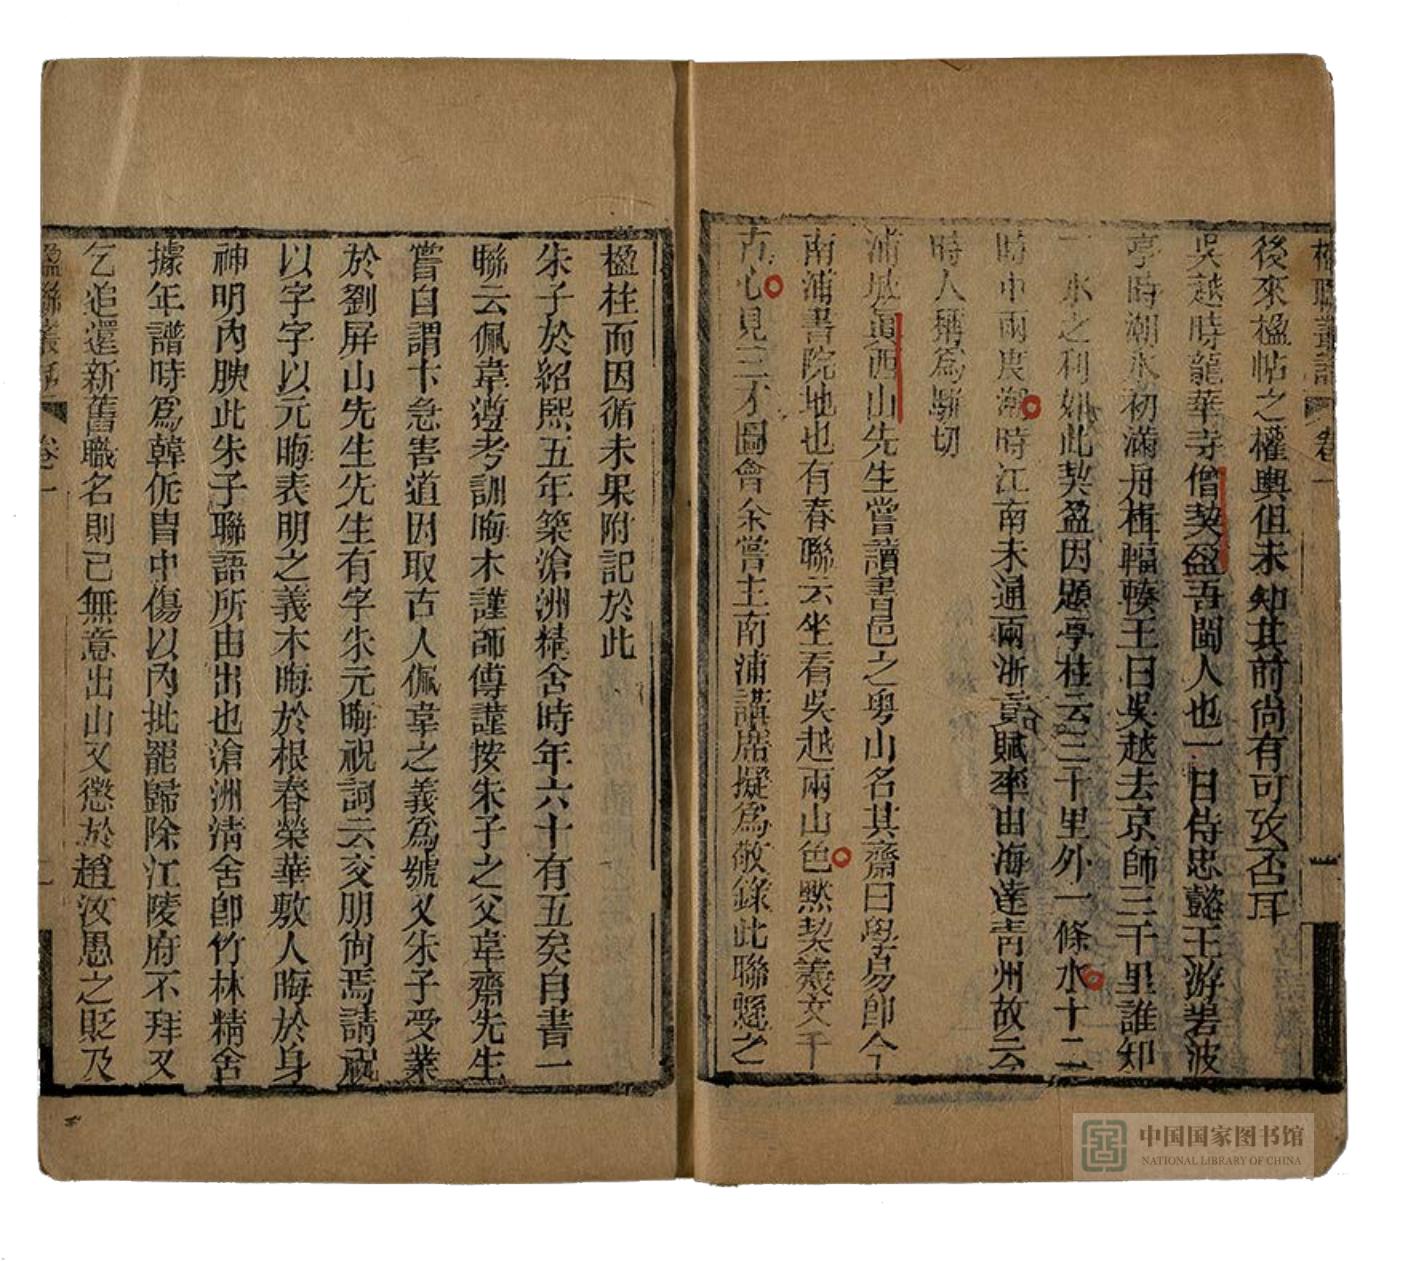 楹聯叢話 卷一
後來楹帖之權輿但未知其前尚有可攷否耳
吳越時龍華寺僧契盈吾閩人也一日侍忠懿王游碧波
亭時潮水初滿舟楫輻輳王曰吳越去京師三千里誰知
一水之利如此契盈因題亭柱云三千里外一條水十二
時中兩度潮時江南未通兩浙貢賦率由海達青州故云
時人稱為駢切
浦城真西山先生嘗讀書邑之粵山名其齋曰學易即今
南浦書院地也有春聯云坐看吳越兩山色默契羲文千
古心見三才圖會余嘗主南浦講席擬為敬錄此聯懸之
楹柱而因循未果附記於此
朱子於紹熙五年築滄洲精舍時年六十有五矣自書一
聯云佩韋遵考訓晦木謹師傳謹按朱子之父韋齋先生
嘗自謂卞急害道因取古人佩韋之義為號又朱子受業
於劉屏山先生先生有字朱元晦祝詞云交朋尚焉請祝
以字字以元晦表明之義木晦於根春榮華敷人晦於身
神明內腴此朱子聯語所由出也滄洲清舍即竹林精舍
據年譜時為韓侂胄中傷以內批罷歸除江陵府不拜又
乞追還新舊職名則已無意出山又懲於趙汝愚之貶及
楹聯叢話 卷一 一
中国国家图书馆
NATIONAL LIBRARY OF CHINA